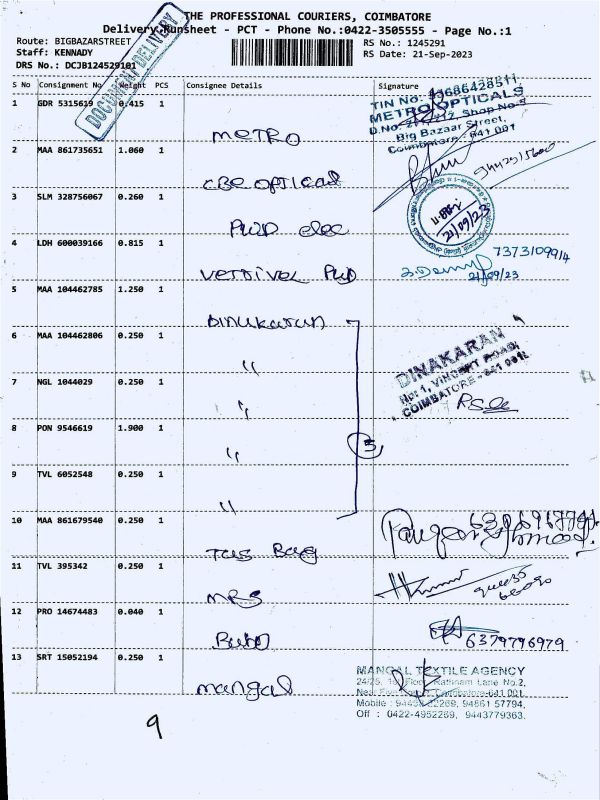 THE PROFESSIONAL COURIERS, COIMBATORE
Delivery Runsheet - PCT - Phone No.:0422-3505555 - Page No.:1
Route: BIGBAZARSTREET
Staff: KENNADY
DRS No.: DCJB124529101
RS No.: 1245291
RS Date: 21-Sep-2023
DOCUMENT DELIVERY
S No Consignment No Weight PCS Consignee Details Signature
1 GDR 5315619 0.415 1 METRO
TIN No:
METRO OPTICALS
Big Bazaar Street,
Coimbatore - 641 001
2 MAA 861735651 1.060 1 CBE OPTICAL
3 SLM 328756067 0.260 1 PWD elec
21/09/23
4 LDH 600039166 0.815 1 VETRIVEL PWD
7373109914
21/09/23
5 MAA 104462785 1.250 1 Dinakaran
6 MAA 104462806 0.250 1 "
DINAKARAN
No: 1, VINCENT ROAD,
COIMBATORE - 641 001
7 NGL 1044029 0.250 1 "
8 PON 9546619 1.900 1 "
5
9 TVL 6052548 0.250 1 "
10 MAA 861679540 0.250 1 Tas Bag
11 TVL 395342 0.250 1 MRS
12 PRO 14674483 0.040 1
6379796979
13 SRT 15052194 0.250 1 mangal
MANGAL TEXTILE AGENCY
24/25, 1st Floor, Ratinam Lane No.2,
Coimbatore-641 001
Off : 0422-4952269, 9443779363.
9